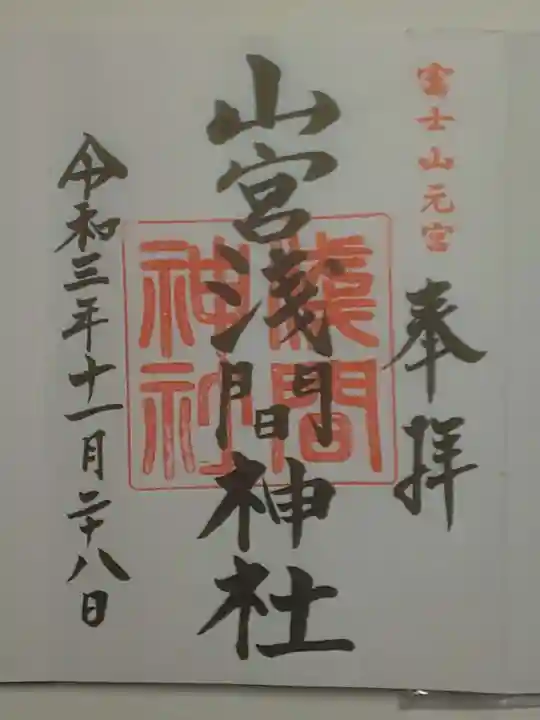 富士山元宮
奉拝
山宮浅間神社
淺間神社
令和三年十一月二十八日